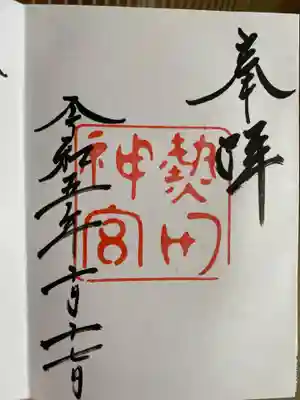 奉拝
熱田
神宮
令和五年六月十七日